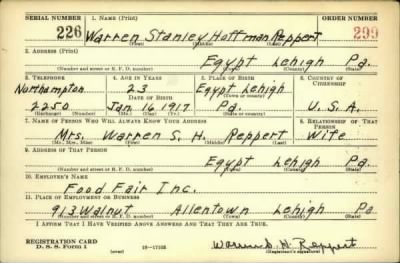 SERIAL NUMBER 1. NAME (Print) ORDER NUMBER
226 Warren Stanley Hoffman Reppert 299
(First) (Middle) (Last)
2. ADDRESS (Print)
Egypt Lehigh Pa.
(Number and street or R. F. D. number) (Town) (County) (State)
3. TELEPHONE 4. AGE IN YEARS 5. PLACE OF BIRTH 6. COUNTRY OF CITIZENSHIP
Northampton 23 Egypt Lehigh
DATE OF BIRTH (Town or county)
2250 Jan. 16 1917 Pa. U.S.A.
(Exchange) (Number) (Mo.) (Day) (Yr.) (State or country)
7. NAME OF PERSON WHO WILL ALWAYS KNOW YOUR ADDRESS 8. RELATIONSHIP OF THAT PERSON
Mrs. Warren S. H. Reppert Wife
(Mr., Mrs., Miss) (First) (Middle) (Last)
9. ADDRESS OF THAT PERSON
Egypt Lehigh Pa.
(Number and street or R. F. D. number) (Town) (County) (State)
10. EMPLOYER'S NAME
Food Fair Inc.
11. PLACE OF EMPLOYMENT OR BUSINESS
913 Walnut Allentown Lehigh Pa
(Number and street or R. F. D. number) (Town) (County) (State)
I AFFIRM THAT I HAVE VERIFIED ABOVE ANSWERS AND THAT THEY ARE TRUE.
REGISTRATION CARD
D. S. S. Form 1 (over) 16-17105 Warren S. H. Reppert
(Registrant's signature)